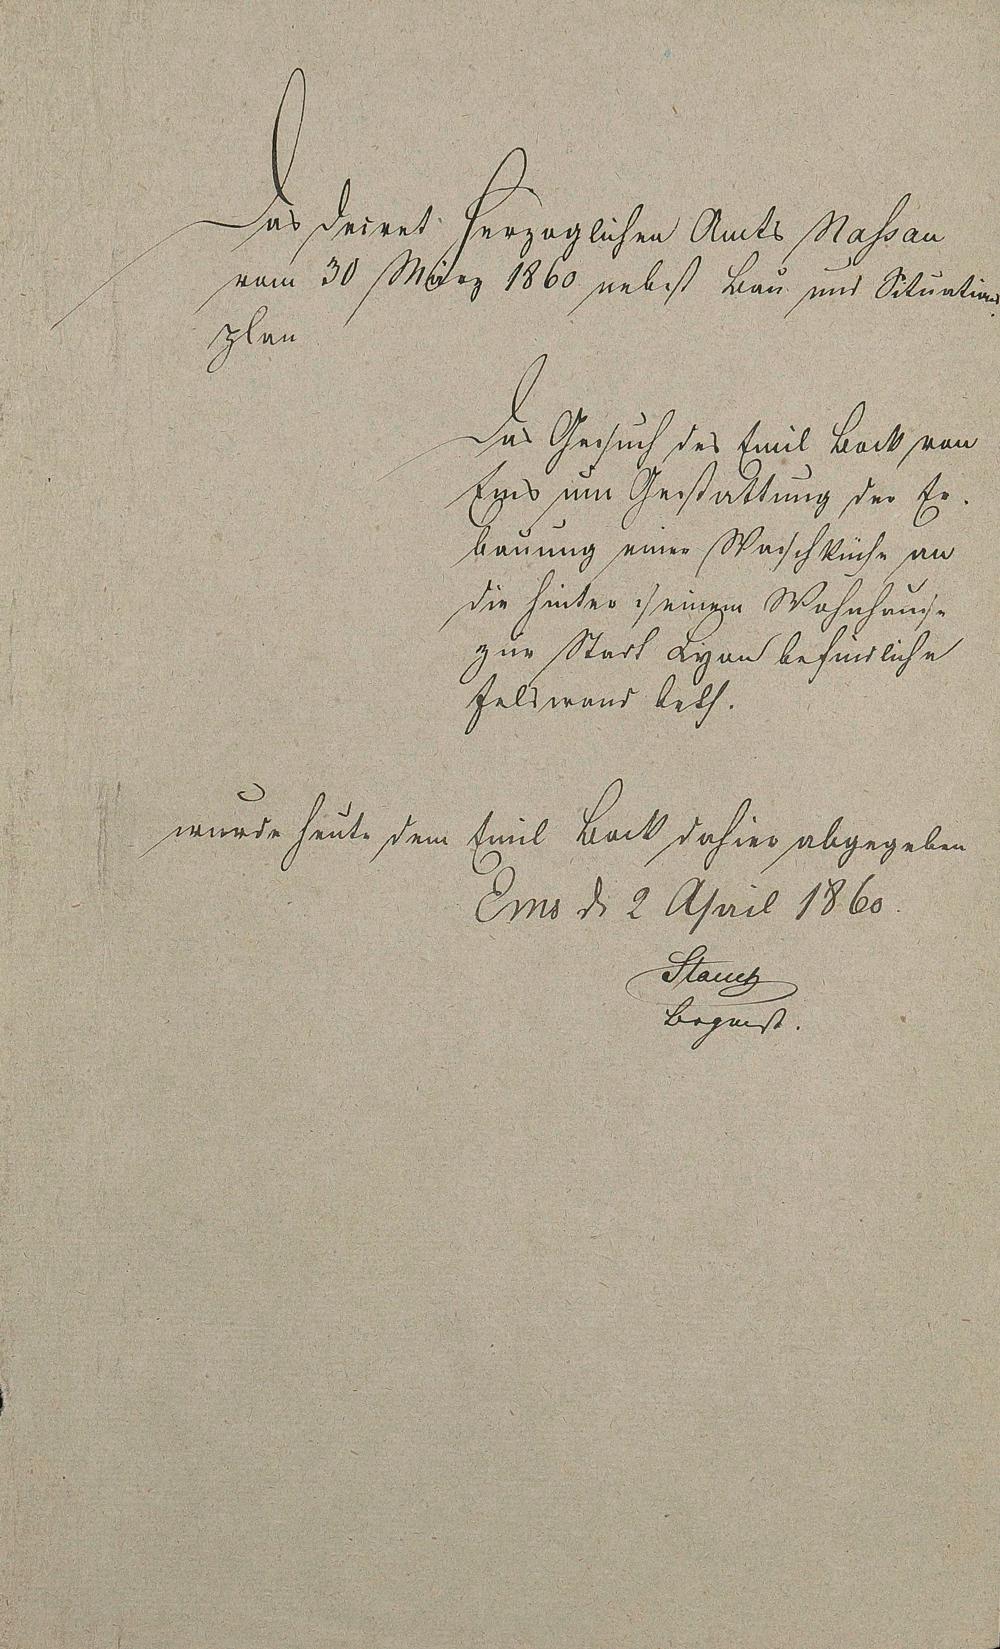 Das Decret Herzoglichen Amts Nassau
vom 30 März 1860 nebst Bau und Situations
plan
Das Gesuch des Emil Bock von
Ems um Gestattung der Er-
bauung einer Waschküche an
die hinter seinem Wohnhause
zur Stadt Lyon befindliche
Felswand betr.
wurde heute dem Emil Bock dahier abgegeben
Ems d 2 April 1860.